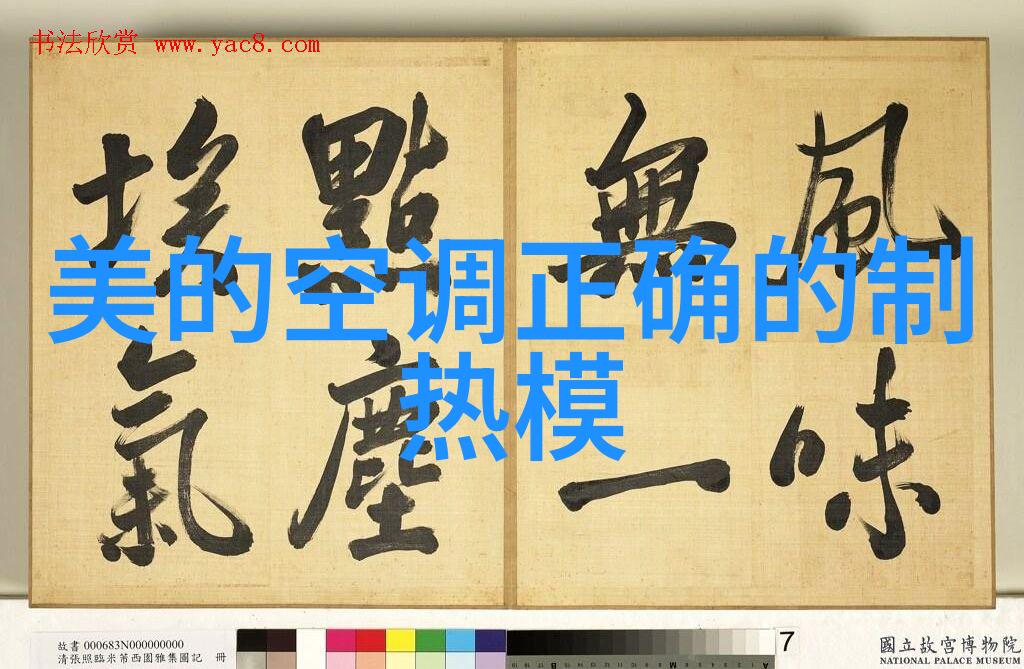 书法欣赏 www.yac8.com
風味
無一
點塵
埃氣
美的空调正确的制
热模
故書 000683N000000000
清張照臨米芾西園雅集圖記 冊
7
國立故宮博物院
NATIONAL PALACE MUSEUM